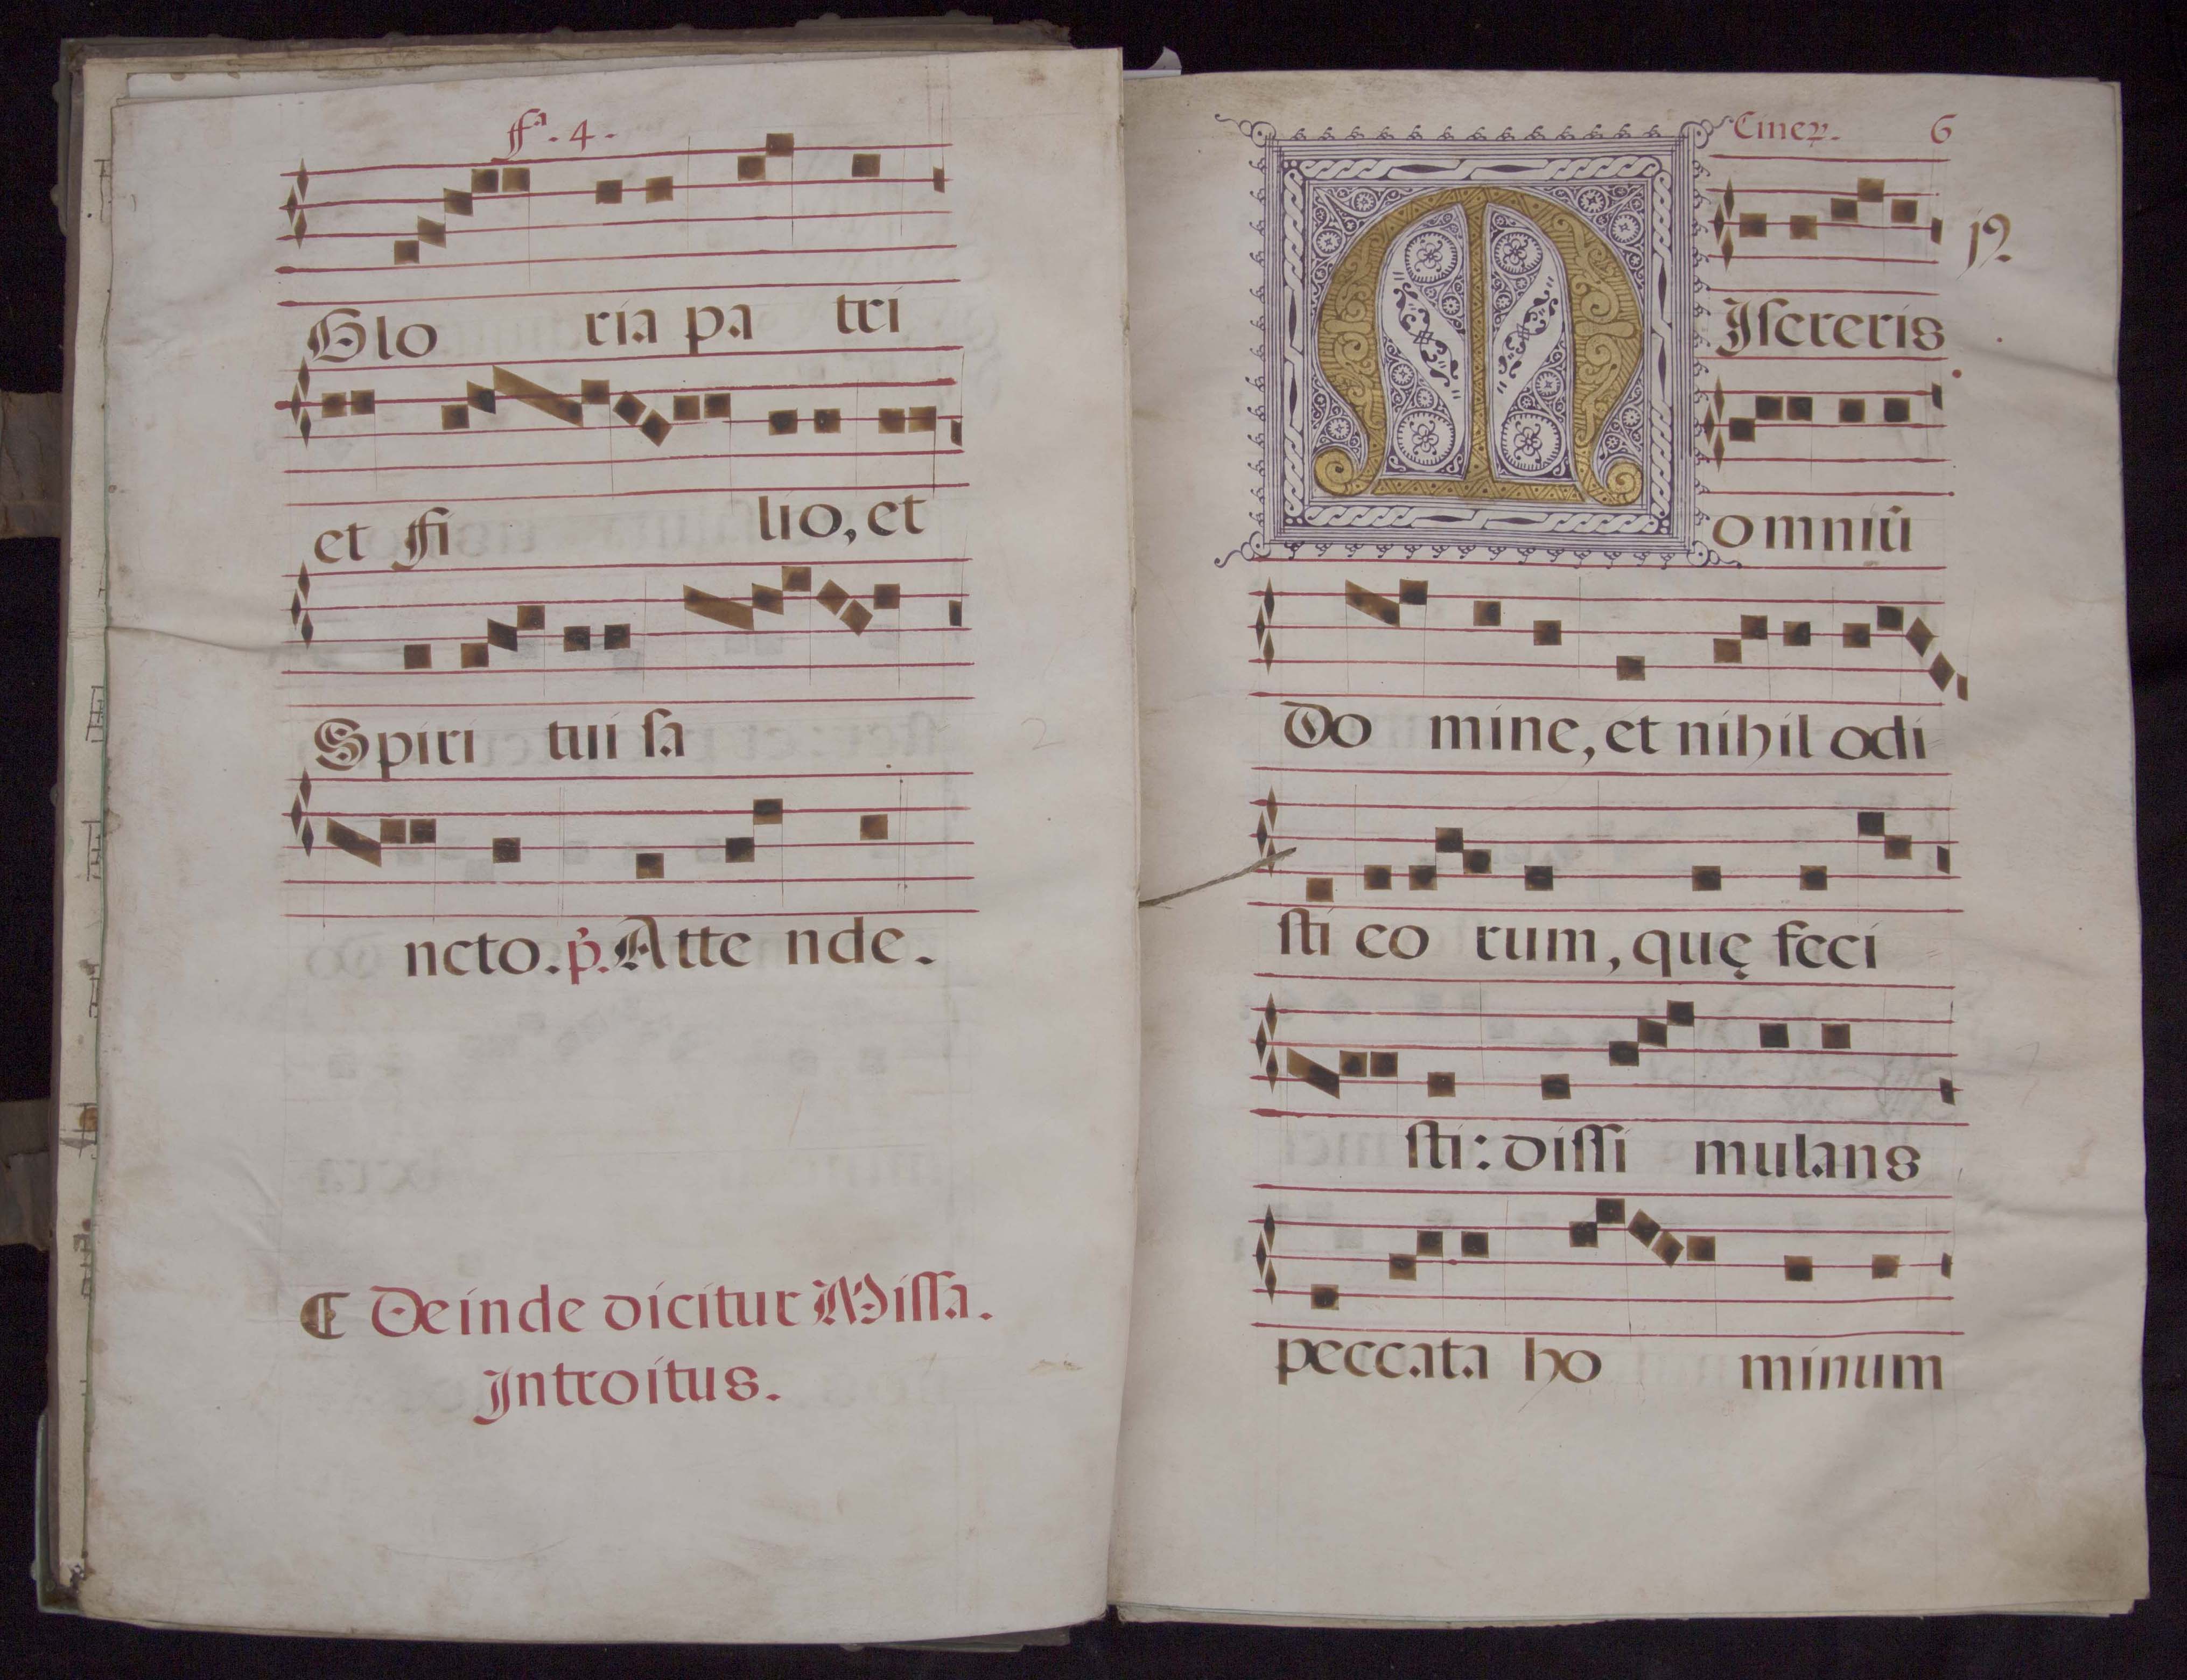 fª. 4.
Glo ria pa tri
et fi lio, et
Spiri tui sa
ncto. p. Atte nde.
Deinde dicitur Missa.
Introitus.
Cineꝝ. 6
MIsereris
omniũ
Do mine, et nihil odi
sti eo rum, quę feci
sti: dissi mulans
peccata ho minum